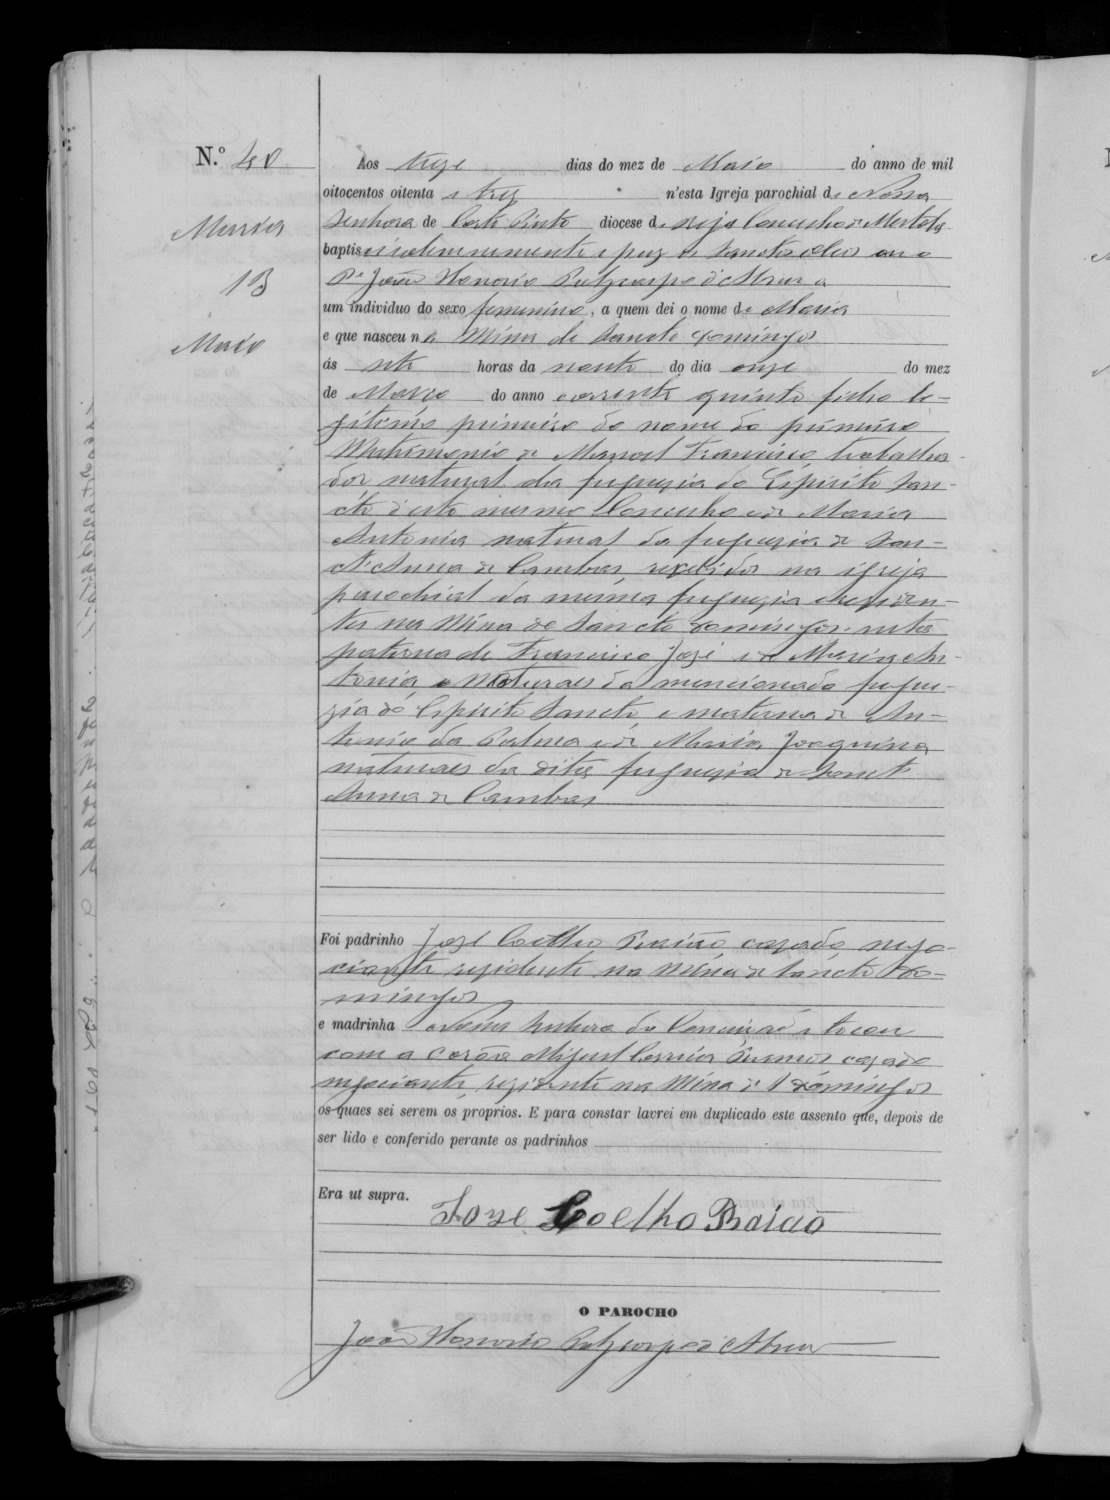 N.º 40
Maria
13
Maio
Aos treze dias do mez de Maio do anno de mil
oitocentos oitenta e trez n'esta Igreja parochial de Nossa
Senhora de Corte Pinto diocese de Beja Concelho de Mertola
baptisei solemnemente e puz os Sanctos oleos eu o
Pe João Honorio Polycarpo d'Abreu a
um individuo do sexo femenino, a quem dei o nome de Maria
e que nasceu na Mina de Sancto Domingos
ás sete horas da noute do dia onze do mez
de Março do anno corrente quinto filho le-
gitimo primeiro do nome do primeiro
Matrimonio de Manoel Francisco trabalha-
dor natural da freguezia do Espirito San-
cto d'este mesmo Concelho e de Maria
Antonia natural da freguezia de San-
ct'Anna de Cambas, recebidos na igreja
parochial da mesma freguezia e residen-
tes na Mina de Sancto Domingos. neta
paterna de Francisco José e de Maria An-
tonia naturaes da mencionada fregue-
zia do Espirito Sancto, e materna de An-
tonio da Palma e de Maria Joaquina
naturaes da dita freguezia de Sanct
Anna de Cambas
Foi padrinho José Coelho Baião cazado nego-
ciante rezidente na Mina de Sancto Do-
mingos
e madrinha Nossa Senhora da Conceição e tocou
com a Corôa Miguel Correia cazado
negociante, rezidente na Mina de S Domingos
os quaes sei serem os proprios. E para constar lavrei em duplicado este assento que, depois de
ser lido e conferido perante os padrinhos
Era ut supra.
Joze Coelho Baiaõ
O PAROCHO
João Honorio Polycarpo d'Abreu